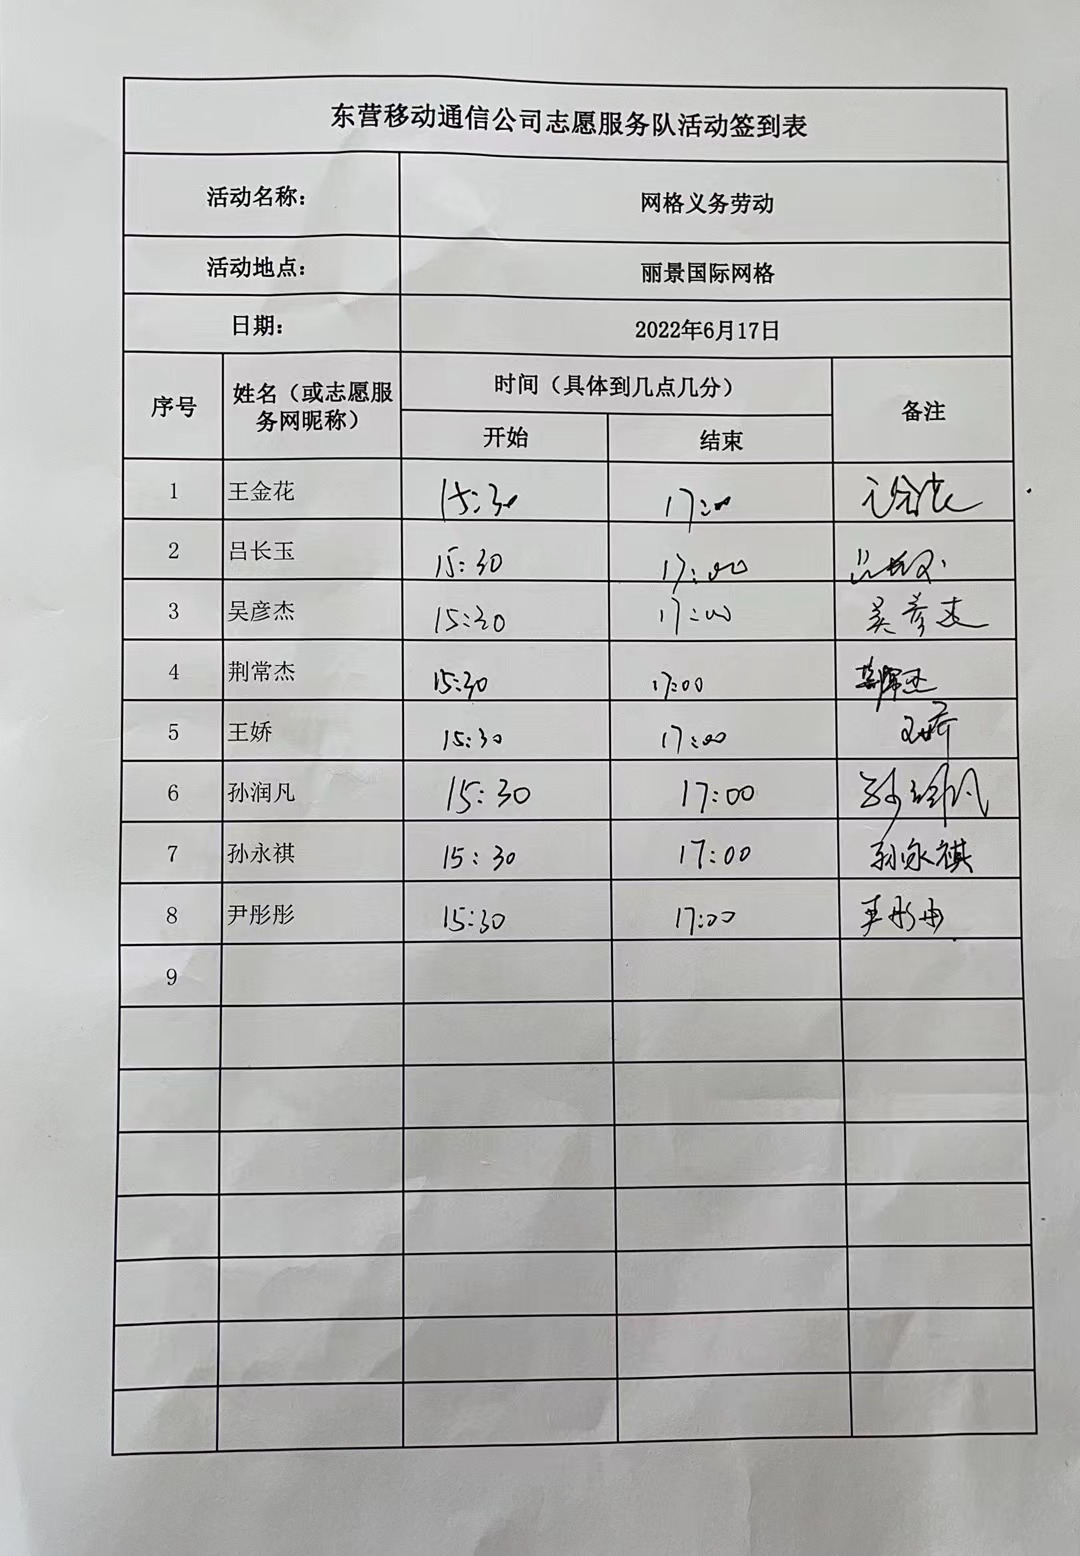 东营移动通信公司志愿服务队活动签到表
活动名称： 网格义务劳动
活动地点： 丽景国际网格
日期： 2022年6月17日
序号 姓名（或志愿服务网昵称） 时间（具体到几点几分） 备注
开始 结束
1 王金花 15:30 17:00
2 吕长玉 15:30 17:00
3 吴彦杰 15:30 17:00 吴彦杰
4 荆常杰 15:30 17:00 荆常杰
5 王娇 15:30 17:00 王娇
6 孙润凡 15:30 17:00 孙润凡
7 孙永祺 15:30 17:00 孙永祺
8 尹彤彤 15:30 17:00
9